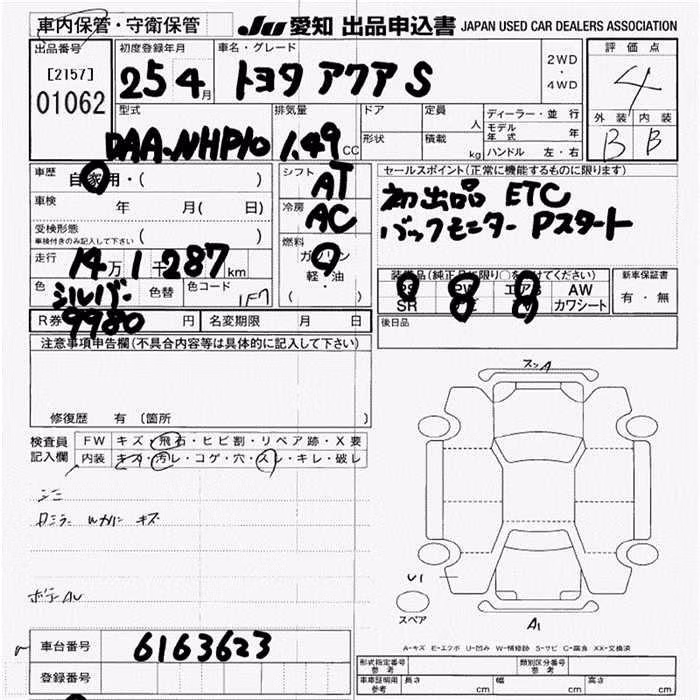 車内保管・守衛保管
JU 愛知 出品申込書 JAPAN USED CAR DEALERS ASSOCIATION
出品番号 初度登録年月 車名・グレード 評価点
[2157] 25 4月 トヨタ アクア S 2WD・4WD 4
01062
型式 排気量 ドア 定員 人 ディーラー・並行 外装 内装
DAA-NHP10 1.49 CC 形状 積載 kg モデル年式 年 B B
ハンドル 左・右
車歴 自家用・( ) シフト AT セールスポイント(正常に機能するものに限ります)
車検 年 月( 日) 冷房 AC 初出品 ETC
受検形態 車検付きのみ記入して下さい ( ) バックモニター Pスタート
走行 14万1千287km 燃料 ガソリン 軽・油 ( )
装備品(純正品に限り〇を付けてください) 新車保証書
PS PW エアB AW 有・無
色 シルバー 色替 色コード 1F7 SR カワシート
R券 9980円 名変期限 月 日 後日品
注意事項申告欄(不具合内容等は具体的に記入して下さい)
修復歴 有 (箇所 )
検査員記入欄 FW キズ・飛石・ヒビ割・リペア跡・X要
内装 キズ・汚レ・コゲ・穴・スレ・キレ・破レ
キズ
U1
スペア
A1
A-キズ E-エクボ U-凹み W-補修跡 S-サビ C-腐食 XX-交換済
車台番号 6163623
登録番号
形式指定番号 参考 類別区分番号 参考
車庫証明用 参考 長さ cm 幅 cm 高さ cm